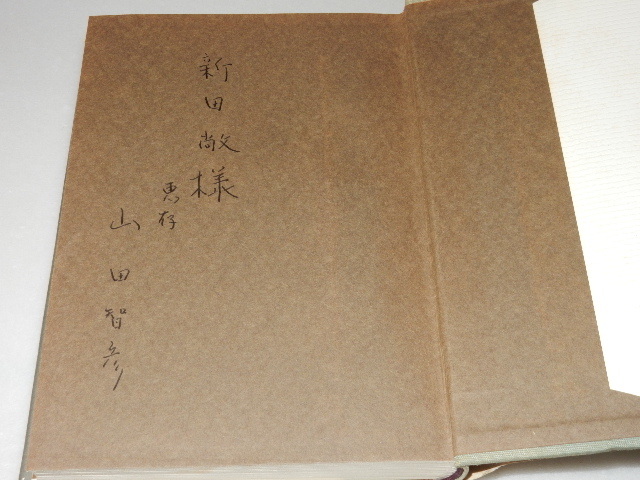 新田敞様
恵存
山田智彦